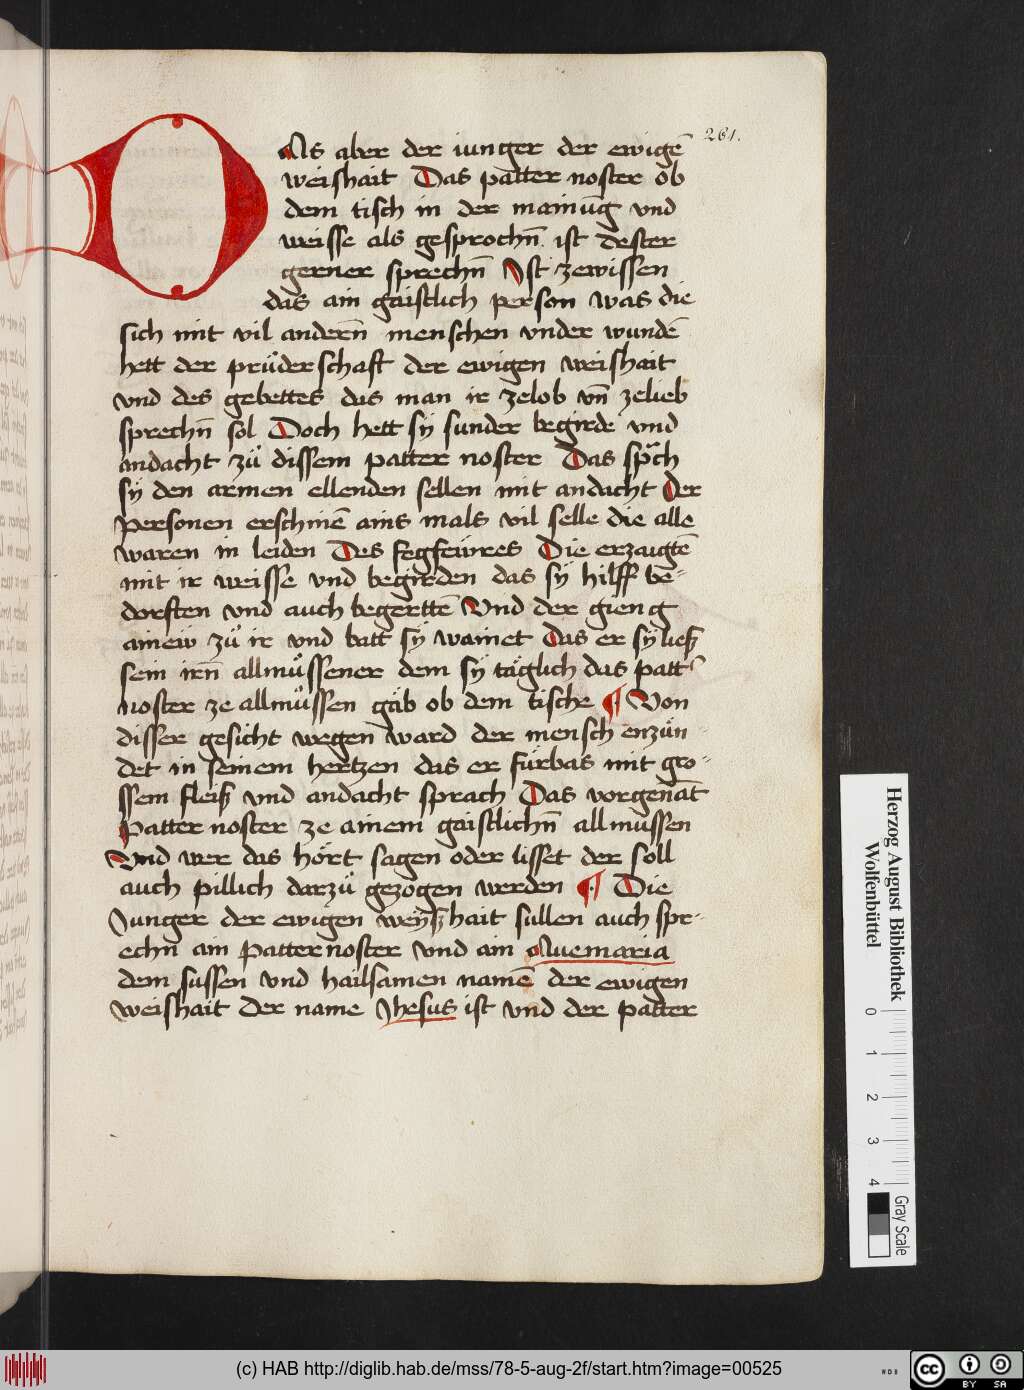 261.
DAls aber der iunger der ewigē
weishait Das patter noster ob
dem tisch in der mainūg vnd
weisse als gesprochn̄ ist dester
gerner sprechn̄ Ist zewissen
das ain gaistlich person was die
sich mit vil anderen̄ menschen vnder wundē
hett der průderschaft der ewigen weishait
vnd des gebettes das man ir zelob vn̄ zelieb
sprechn̄ sol Doch hett sÿ sunder begirde vnd
andacht zů dissem patter noster Das sprach
sÿ den armen ellenden sellen mit andacht Der
personen erschinē ains mals vil selle die alle
waren in leiden Des fegfeüres Die erzaigtē
mit ir weisse vnd begirden das sÿ hilff be⸗
dorsten vnd auch begerttē Vnd der gieng
ainew zů ir vnd batt sÿ wainet Das er sÿ ließ
sein irn̄ allmůssener dem sÿ täglich das patt̾
noster ze allmůssen gäb ob dem tische ¶ Von
disser gesicht wegen ward der mensch enzün⸗
det in seinem hertzen das er fürbas mit gro⸗
ssem fleiß vnd andacht sprach Das vorgenāt
Patter noster ze ainem gaistlichn̄ allmussen
Vnd wer das hört sagen oder lisset der soll
auch pillich darzů gezogen werden ¶ Die
Junger der ewigen weÿßhait sullen auch spr⸗
echn̄ ain patter noster vnd ain Auemaria
dem sussen vnd hailsamen namē der ewigen
weishait Der name Jhesus ist vnd der patter
Herzog August Bibliothek
Wolfenbüttel
0 1 2 3 4
Gray Scale
(c) HAB http://diglib.hab.de/mss/78-5-aug-2f/start.htm?image=00525
cc BY SA